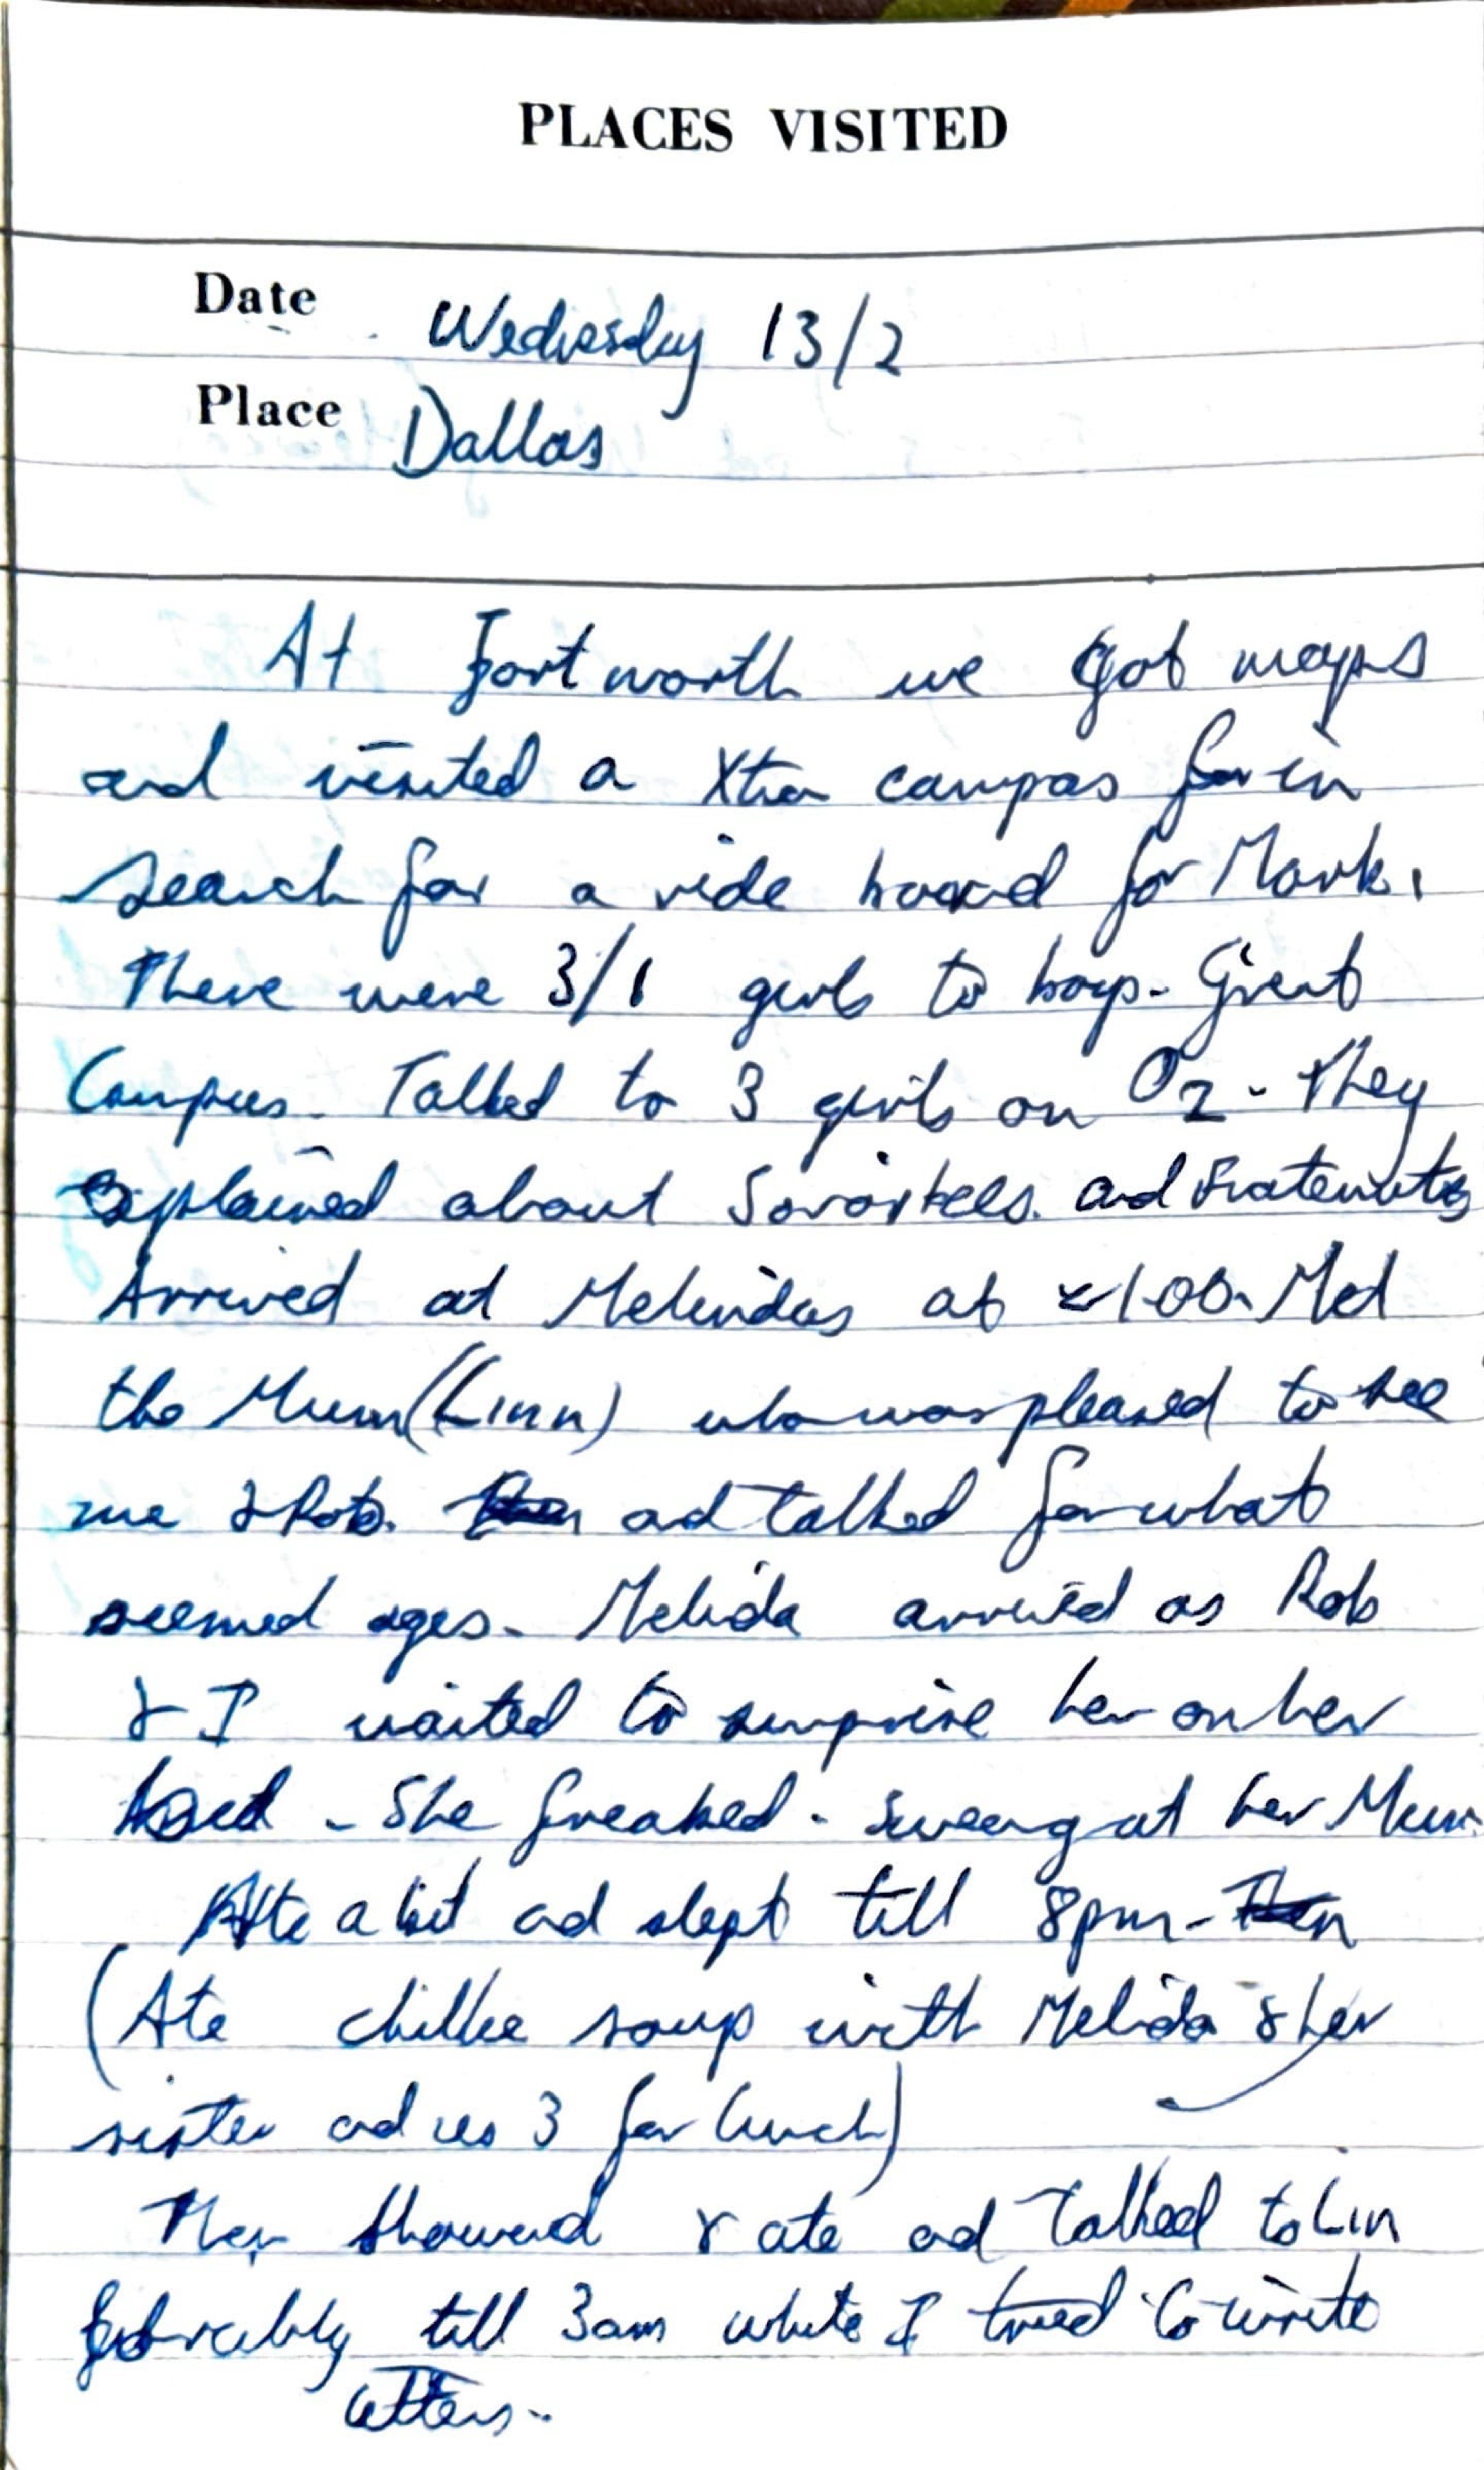 PLACES VISITED
Date Wednesday 13/2
Place Dallas
At Fortworth we got maps
and visited a Xtian campas for in
search for a ride board for Mark.
There were 3/1 girls to boys. Great
Campus. Talked to 3 girls on Oz. They
explained about and Fraternitys
Arrived at Melindas at ≈ 1.00. Met
the Mum (Linn) who was pleased to see
me & Rob. and talked for what
seemed ages. Melida arrived as Rob
& I waited to surprise her on her
bed - She freaked. at her Mum.
Ate a bit ad slept till 8pm - Then
(Ate chillie soup with Melida & her
sister ad us 3 for lunch)
Then showered & ate ad talked to Lin
till 3am while I tried to write
letters..